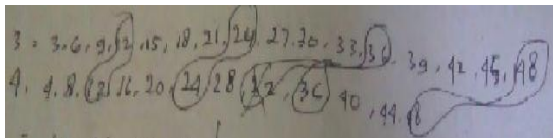 3 = 3, 6, 9, 12, 15, 18, 21, 24, 27, 30, 33, 36, 39, 42, 45, 48
4, 4, 8, 12, 16, 20, 24, 28, 32, 36, 40, 44, 48